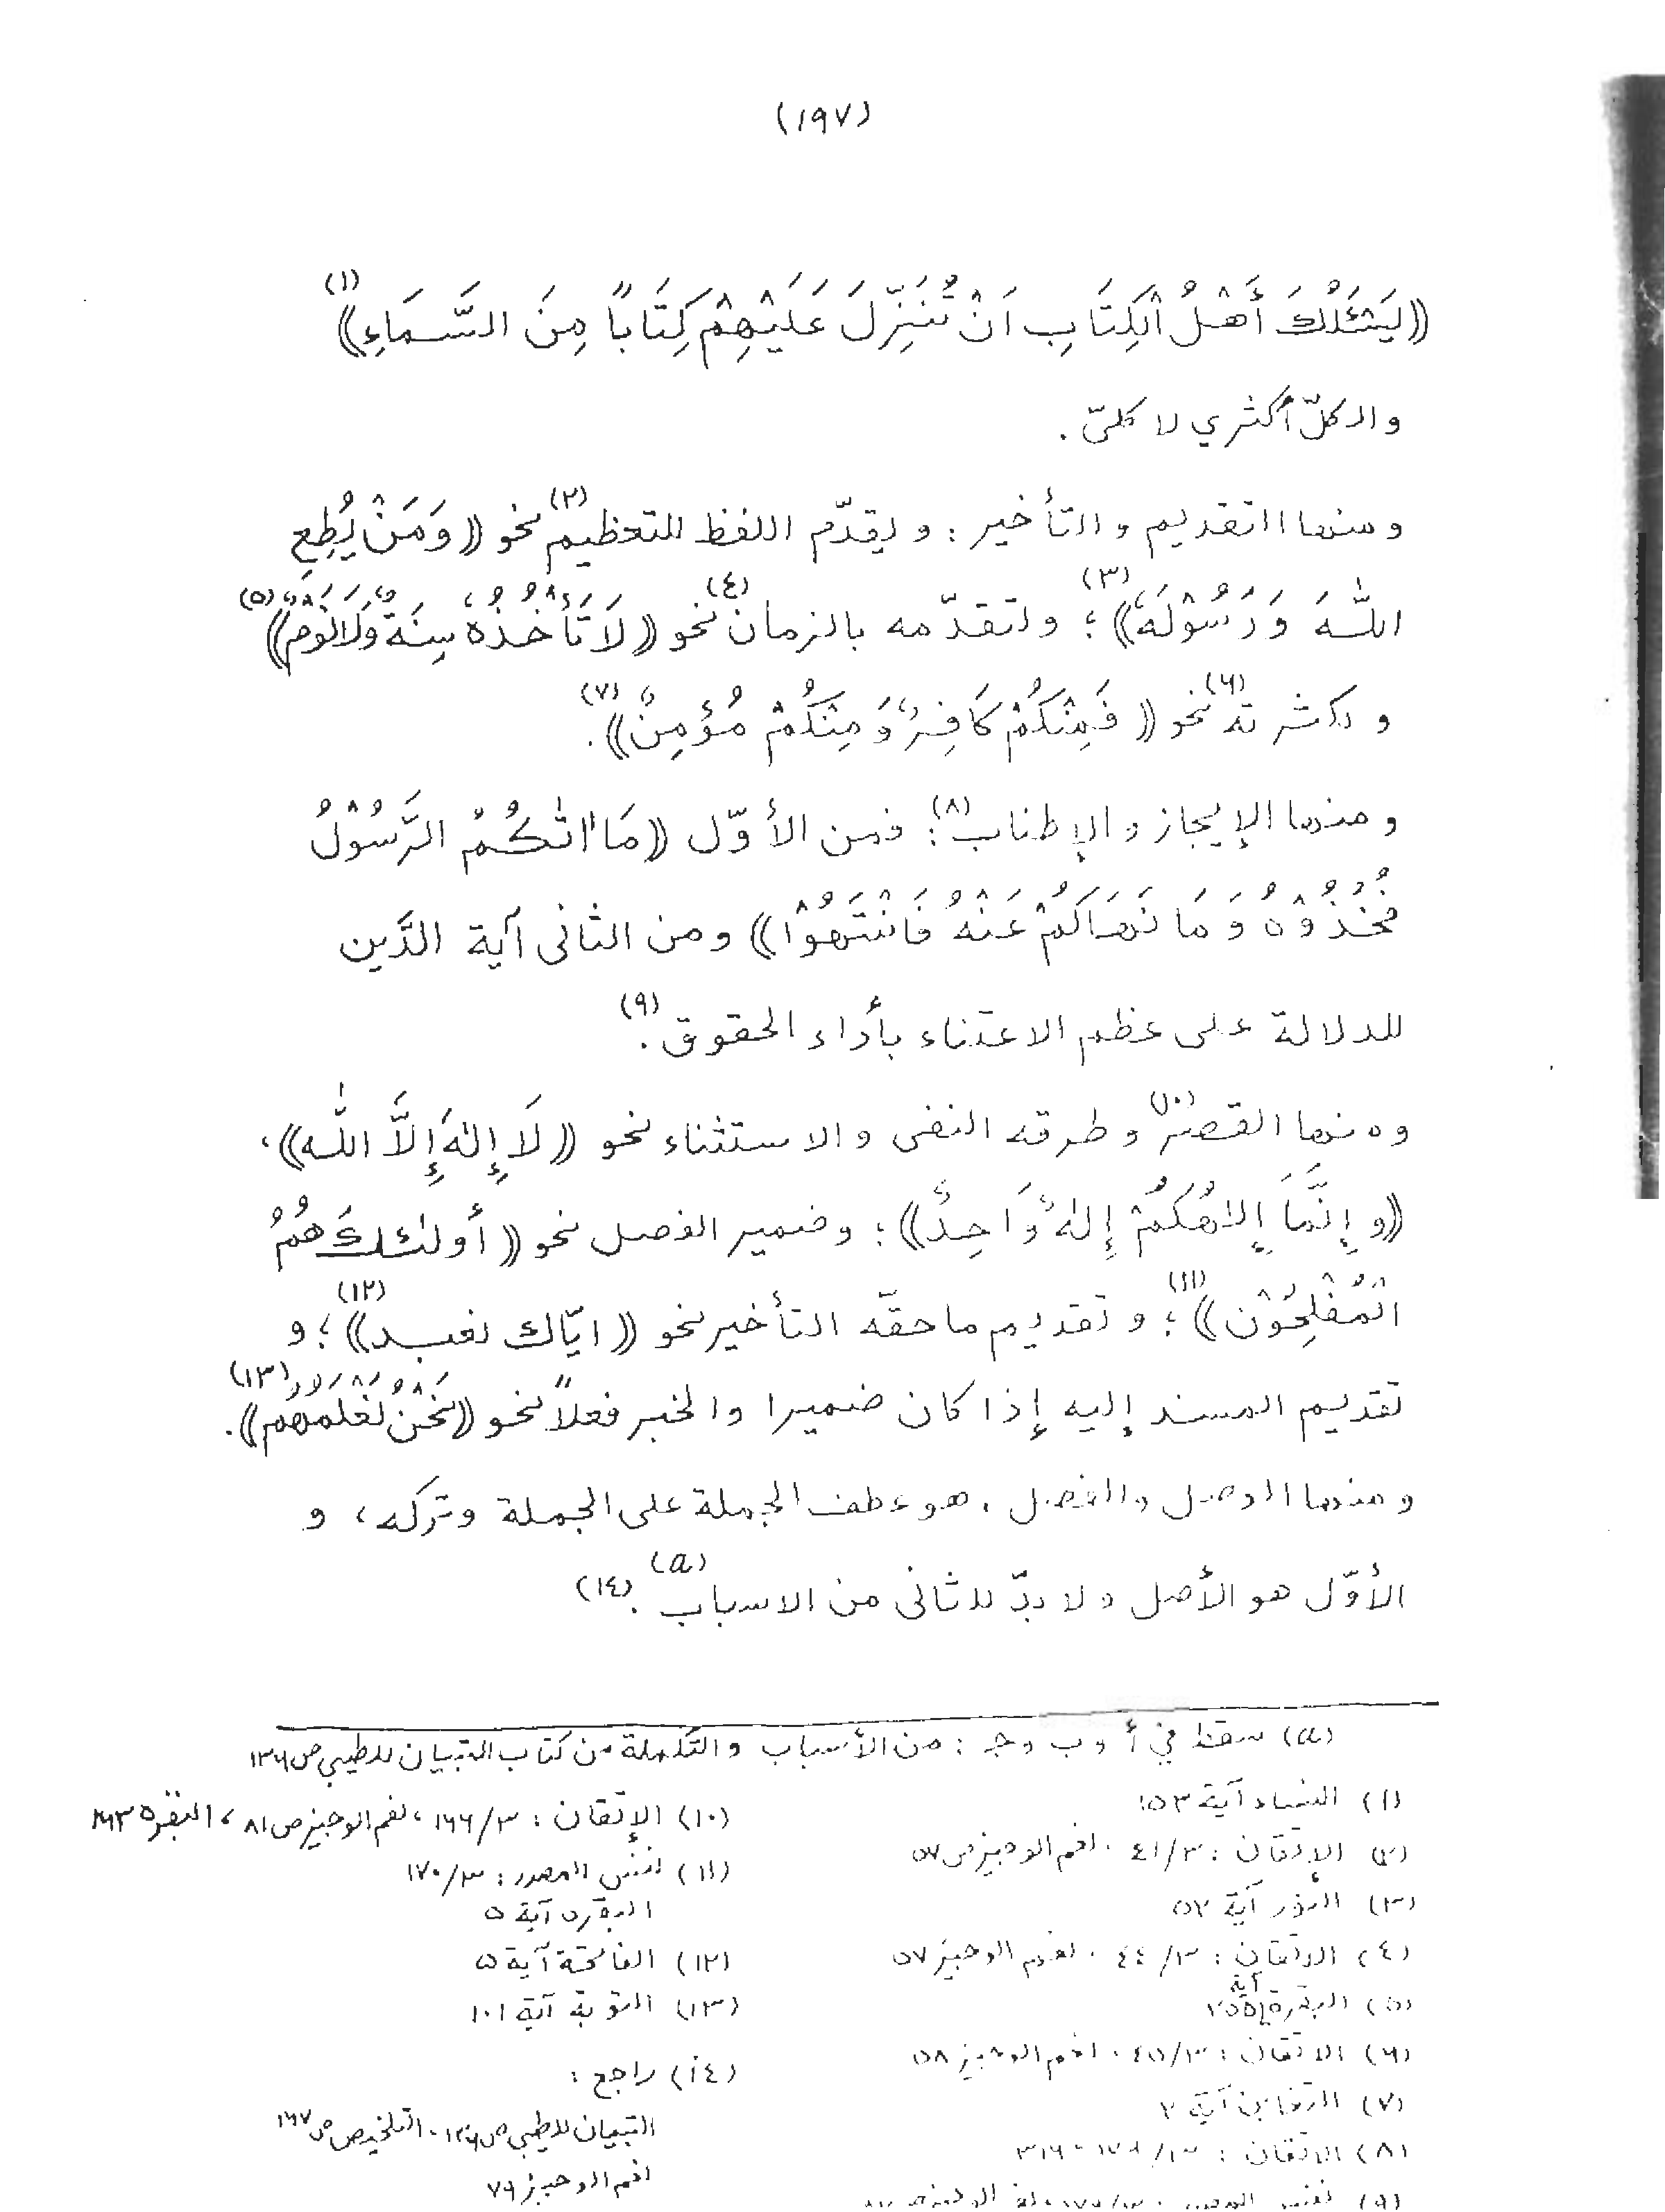 (١٩٧)
((يَسْئَلُكَ أَهْلُ الْكِتَابِ اَنْ تُنَزِّلَ عَلَيْهِمْ كِتَابًا مِنَ السَّمَاءِ)) (١)
والكلّ أكثري لا كليّ .
ومنها التقديم والتأخير : ويقدّم اللفظ للتعظيم (٢) نحو ((وَمَنْ يُطِعِ
اللّٰهَ وَرَسُوْلَهُ)) (٣) ؛ ولتقدّمه بالزمان (٤) نحو ((لَا تَأْخُذُهُ سِنَةٌ وَلَا نَوْمٌ)) (٥)
ولكثرته (٦) نحو ((فَمِنْكُمْ كَافِرٌ وَمِنْكُمْ مُؤْمِنٌ)) (٧) .
ومنها الإيجاز والإطناب (٨) : فمن الأوّل ((مَا اٰتٰكُمُ الرَّسُوْلُ
فَخُذُوْهُ وَمَا نَهَاكُمْ عَنْهُ فَانْتَهُوْا)) ومن الثانى آية الدَّين
للدلالة على عظم الاعتناء بأداء الحقوق (٩) .
ومنها القصر (١٠) وطرقه النفى والاستثناء نحو ((لَا إِلٰهَ إِلَّا اللّٰه)) ،
((وإِنَّمَا إِلٰهُكُمْ إِلٰهٌ وَاحِدٌ)) ؛ وضمير الفصل نحو ((أولٰئك هُمُ
الْمُفْلِحُوْن)) (١١) ؛ وتقديم ما حقّه التأخير نحو ((ايّاك نعبد)) (١٢) ؛ و
تقديم المسند إليه إذا كان ضميرا والخبر فعلاً نحو ((نَحْنُ نَعْلَمُهُم)) (١٣) .
ومنها الوصل والفصل . هو عطف الجملة على الجملة وتركه ، و
الأوّل هو الأصل ولا بدّ للثانى من الاسباب (a) . (١٤)
(a) سقط في أ وب وجـ : من الأسباب والتكملة من كتاب التبيان للطيبي ص ١٣٦
(١) النساء آية ١٥٣
(٢) الإتقان : ٤١/٣ ، لغم الوجيز ص ٥٧
(٣) النور آية ٥٢
(٤) الاتقان : ٤٤/٣ ، لغم الوجيز ٥٧
(٥) البقرة آية ٢٥٥
(٦) الاتقان : ٤٥/٣ ، لغم الوجيز ٥٨
(٧) التغابن آية ٢
(٨) الاتقان :
(٩) نفس المصدر :
(١٠) الإتقان : ١٦٦/٣ ، لغم الوجيز ص ٨١ ، البقره ١٦٣
(١١) نفس المصدر : ١٧٠/٣
البقره آية ٥
(١٢) الفاتحة آية ٥
(١٣) التوبة آية ١٠١
(١٤) راجع :
التبيان للطيبي ص ١٣٦ ، التلخيص ص
لغم الوجيز ٧٦